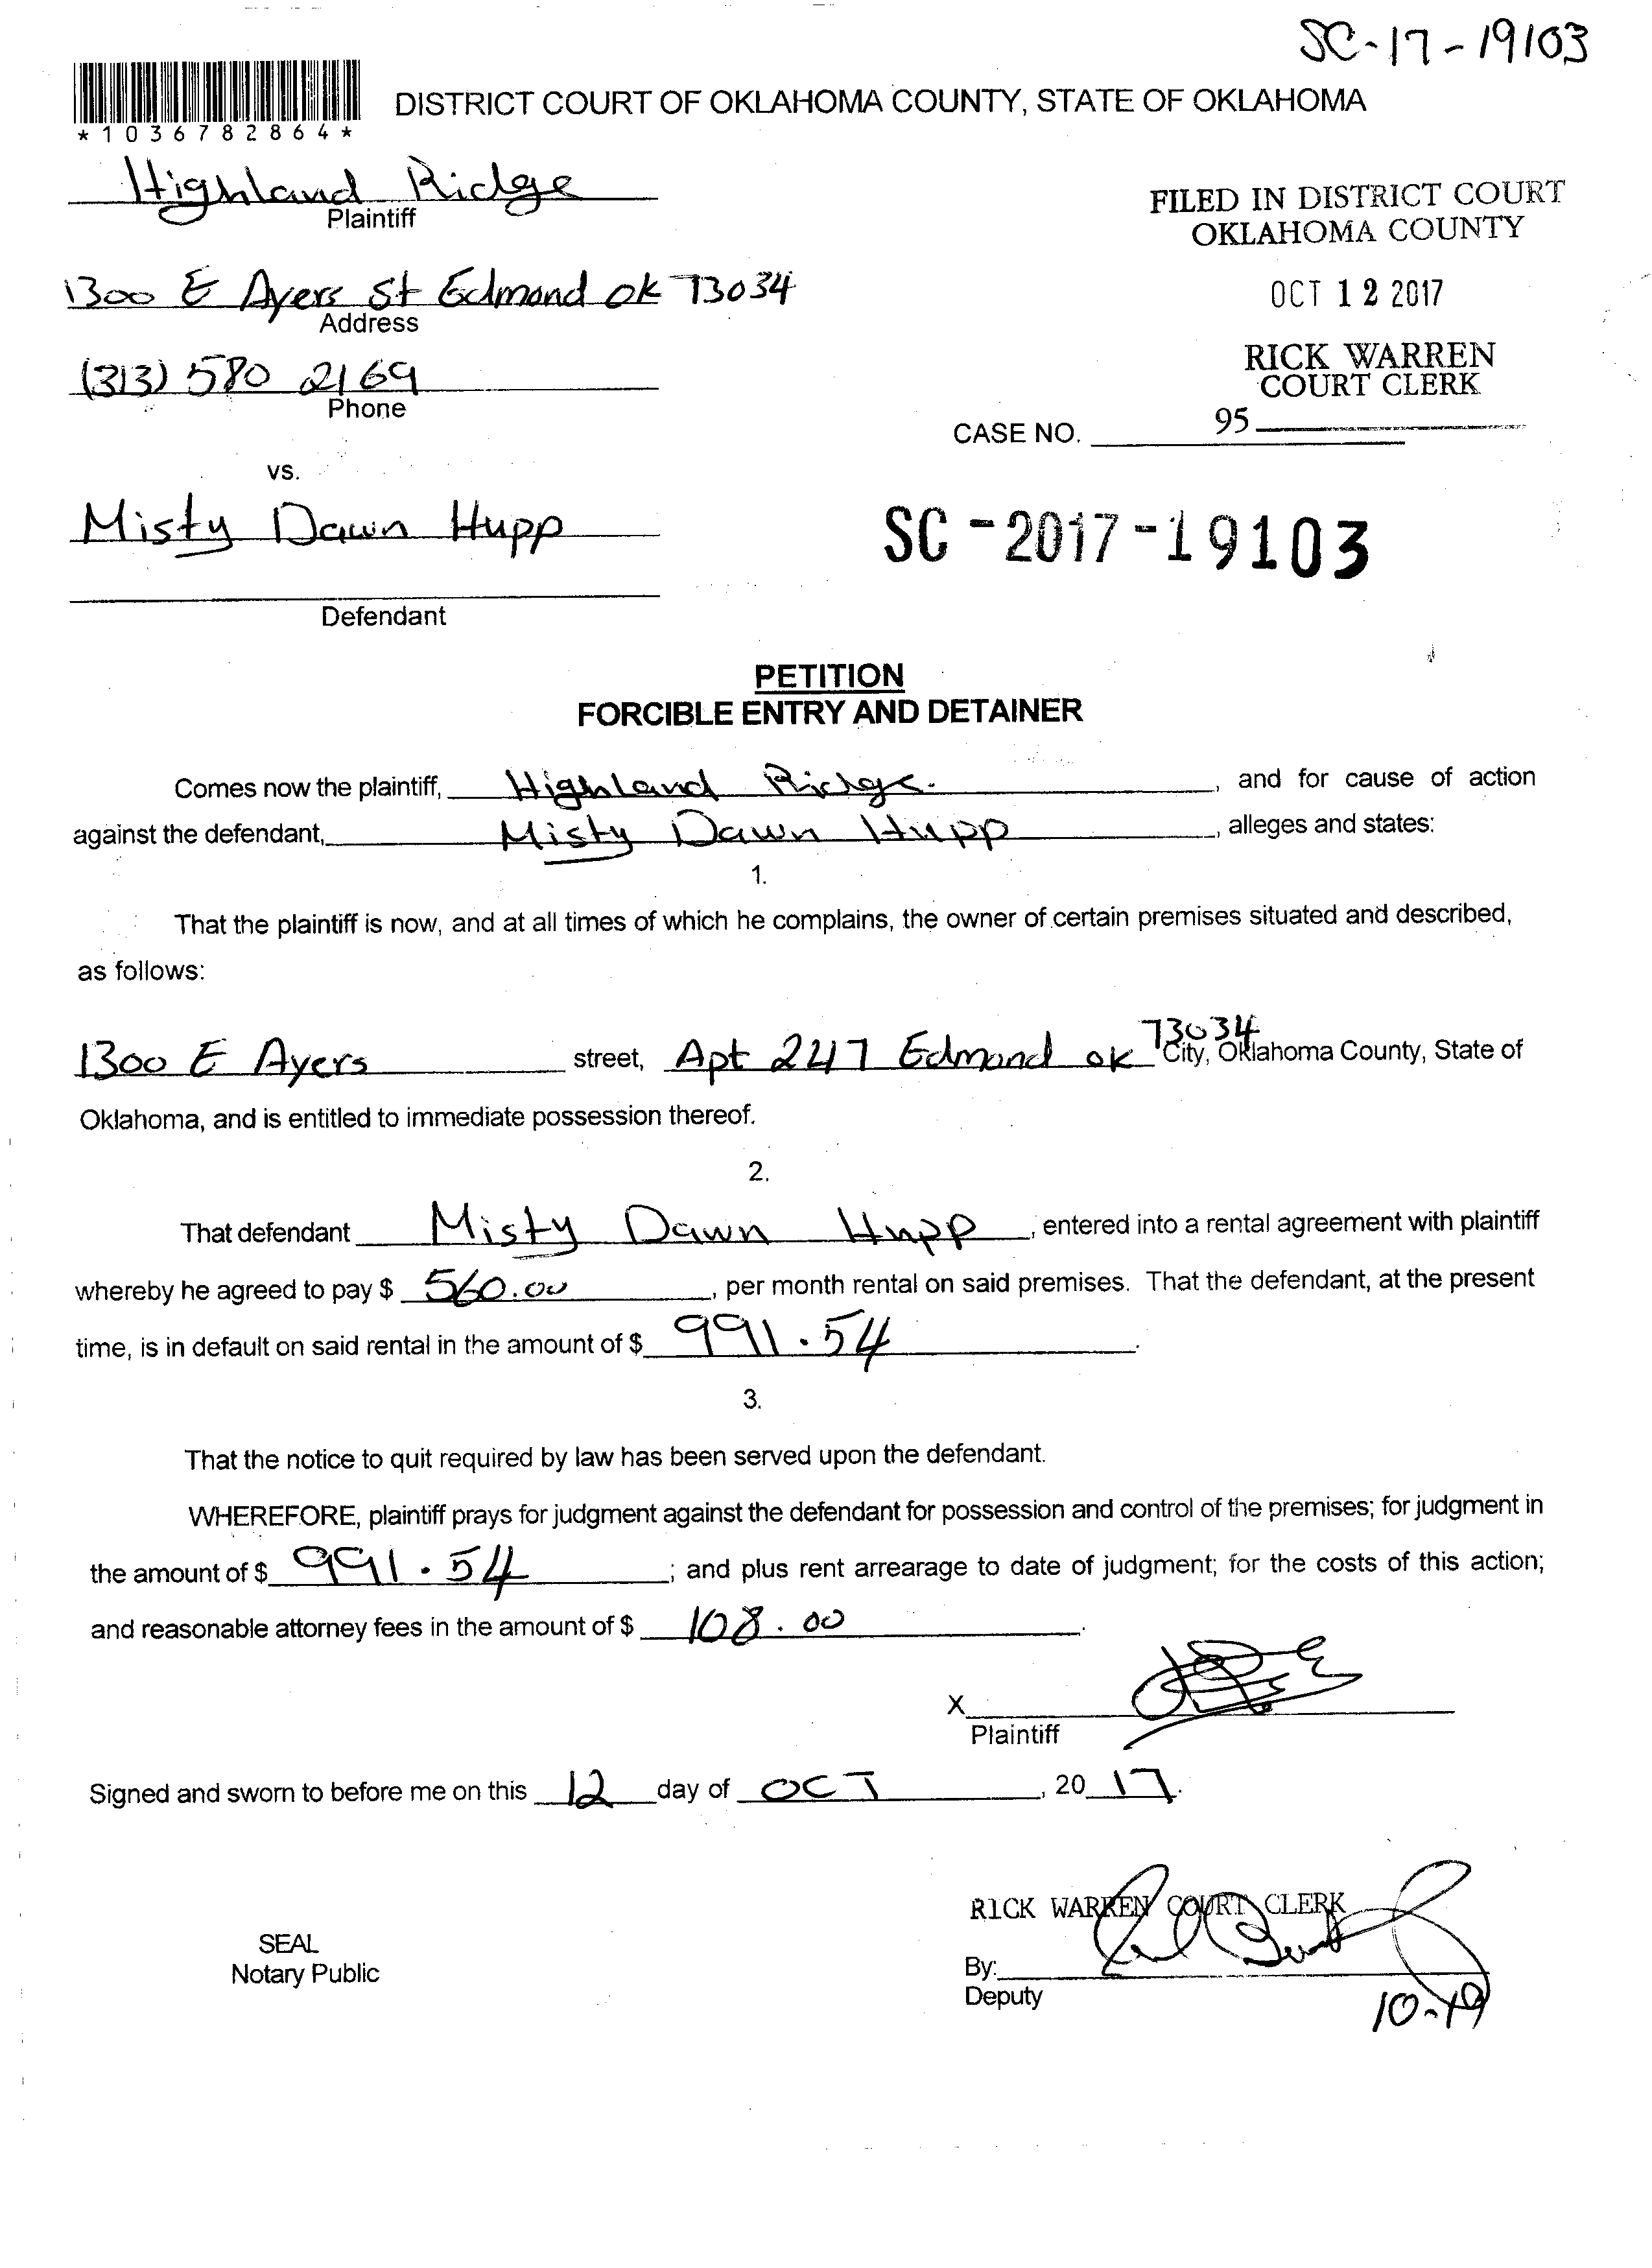 SC-17-19103
*1036782864*
DISTRICT COURT OF OKLAHOMA COUNTY, STATE OF OKLAHOMA
Highland Ridge
Plaintiff
FILED IN DISTRICT COURT
OKLAHOMA COUNTY
1300 E Ayers St Edmond ok 73034
Address
OCT 12 2017
(313) 580 2169
Phone
RICK WARREN
COURT CLERK
95
CASE NO.
vs.
Misty Dawn Hupp
SC-2017-19103
Defendant
PETITION
FORCIBLE ENTRY AND DETAINER
Comes now the plaintiff, Highland Ridge. , and for cause of action
against the defendant, Misty Dawn Hupp , alleges and states:
1.
That the plaintiff is now, and at all times of which he complains, the owner of certain premises situated and described,
as follows:
1300 E Ayers street, Apt 247 Edmond ok 73034 City, Oklahoma County, State of
Oklahoma, and is entitled to immediate possession thereof.
2.
That defendant Misty Dawn Hupp , entered into a rental agreement with plaintiff
whereby he agreed to pay $ 560.00 , per month rental on said premises. That the defendant, at the present
time, is in default on said rental in the amount of $ 991.54 .
3.
That the notice to quit required by law has been served upon the defendant.
WHEREFORE, plaintiff prays for judgment against the defendant for possession and control of the premises; for judgment in
the amount of $ 991.54 ; and plus rent arrearage to date of judgment; for the costs of this action;
and reasonable attorney fees in the amount of $ 108.00 .
X
Plaintiff
Signed and sworn to before me on this 12 day of OCT , 20 17.
RICK WARREN COURT CLERK
SEAL
Notary Public
By:
Deputy
10-19